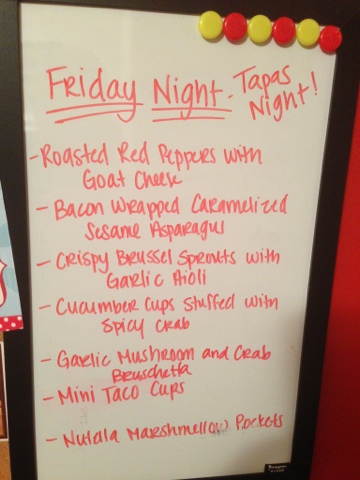 Friday Night - Tapas
Night!
- Roasted Red Peppers with
Goat Cheese
- Bacon Wrapped Caramelized
Sesame Asparagus
- Crispy Brussel Sprouts with
Garlic Aioli
- Cucumber Cups Stuffed with
Spicy Crab
- Garlic Mushroom and Crab
Bruschetta
- Mini Taco Cups
- Nutala Marshmellow Pockets